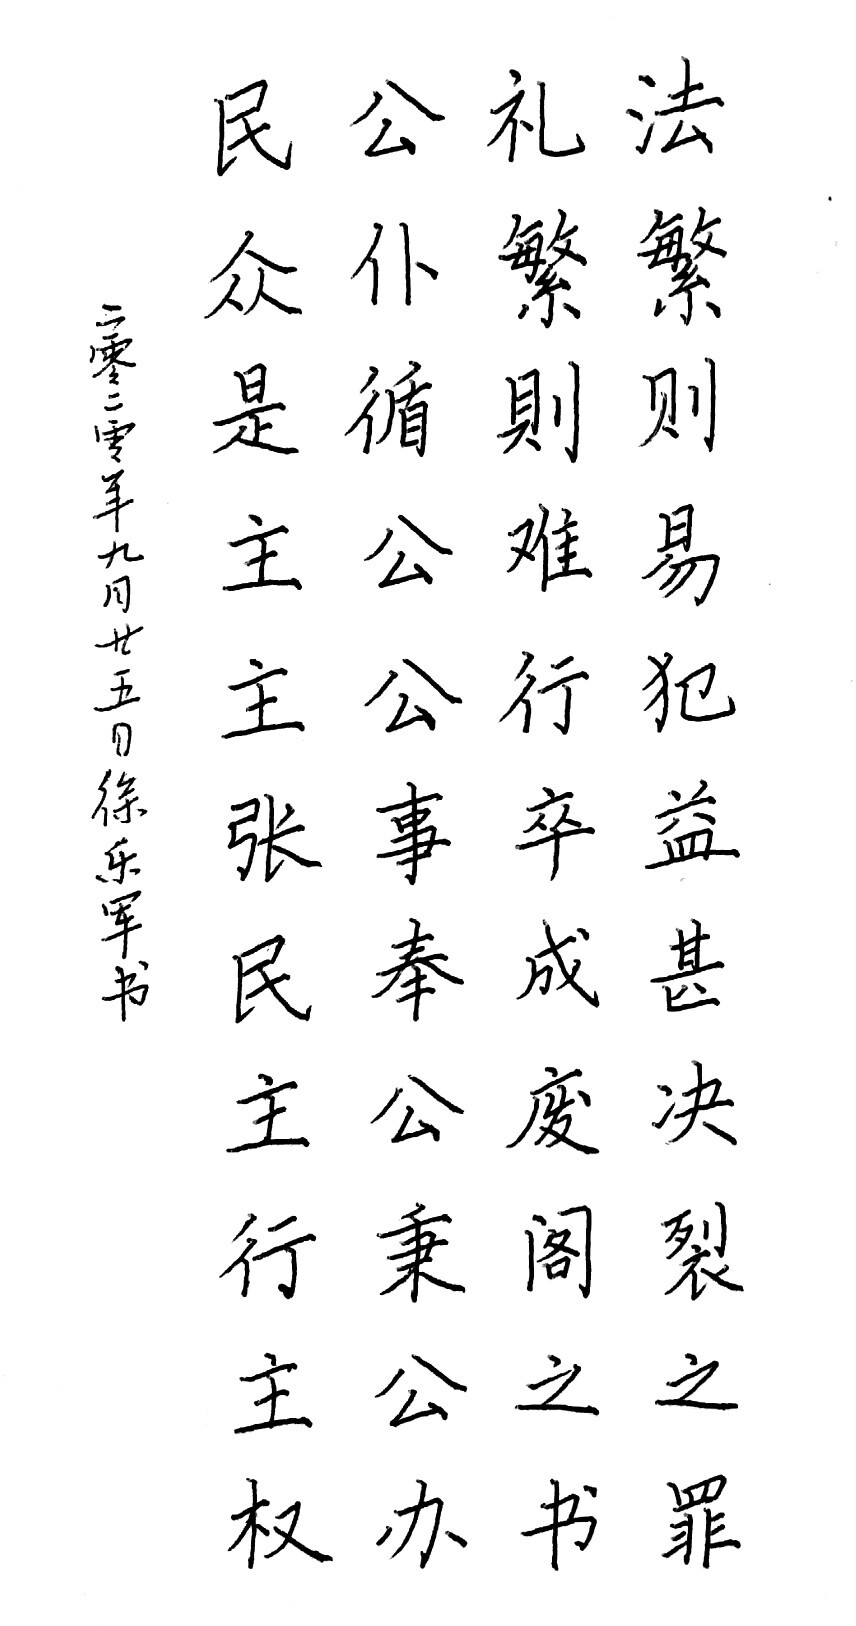 法繁则易犯益甚决裂之罪
礼繁則难行卒成废阁之书
公仆循公公事奉公秉公办
民众是主主张民主行主权
二零二零年九月廿五日徐乐军书